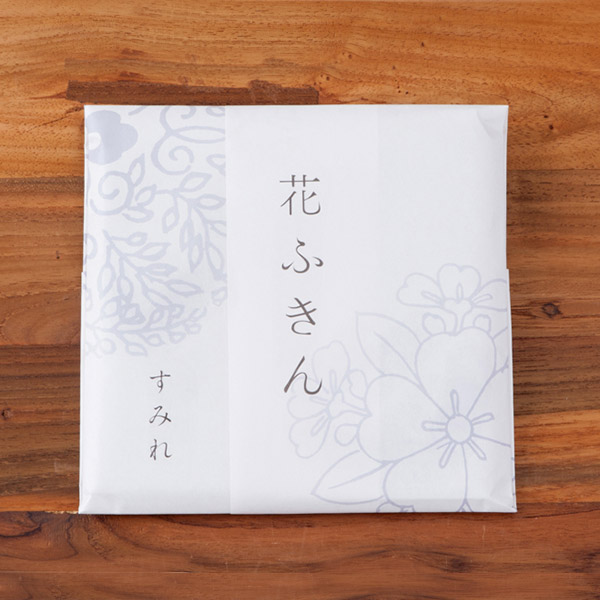 花ふきん
すみれ